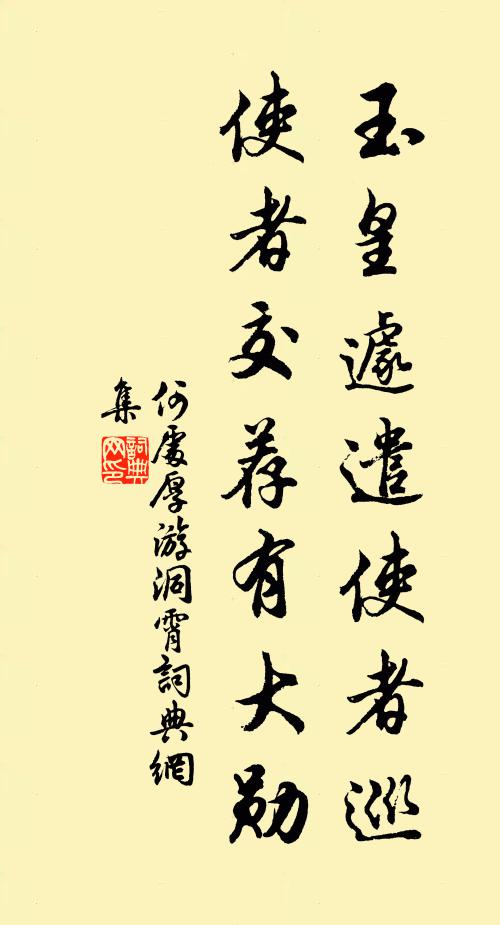 玉皇遽遣使者巡
使者交荐有大勋
何處厚游洞霄詞典網
集
詞典
网印